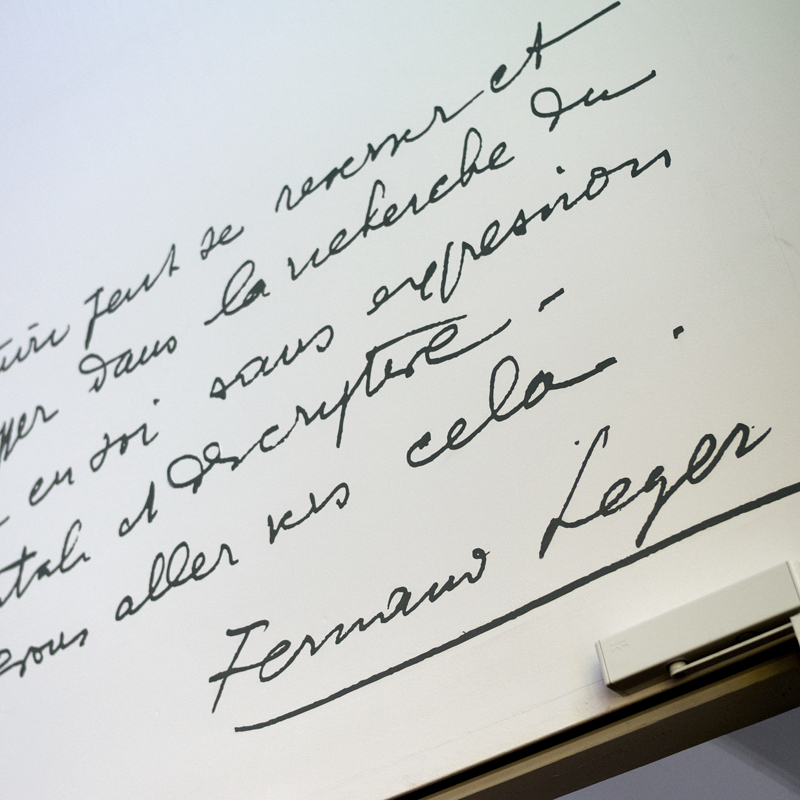 peut se resserrer et
dans la recherche du
en soi sans expression
et descriptive -
aller vers cela .
Fernand Leger